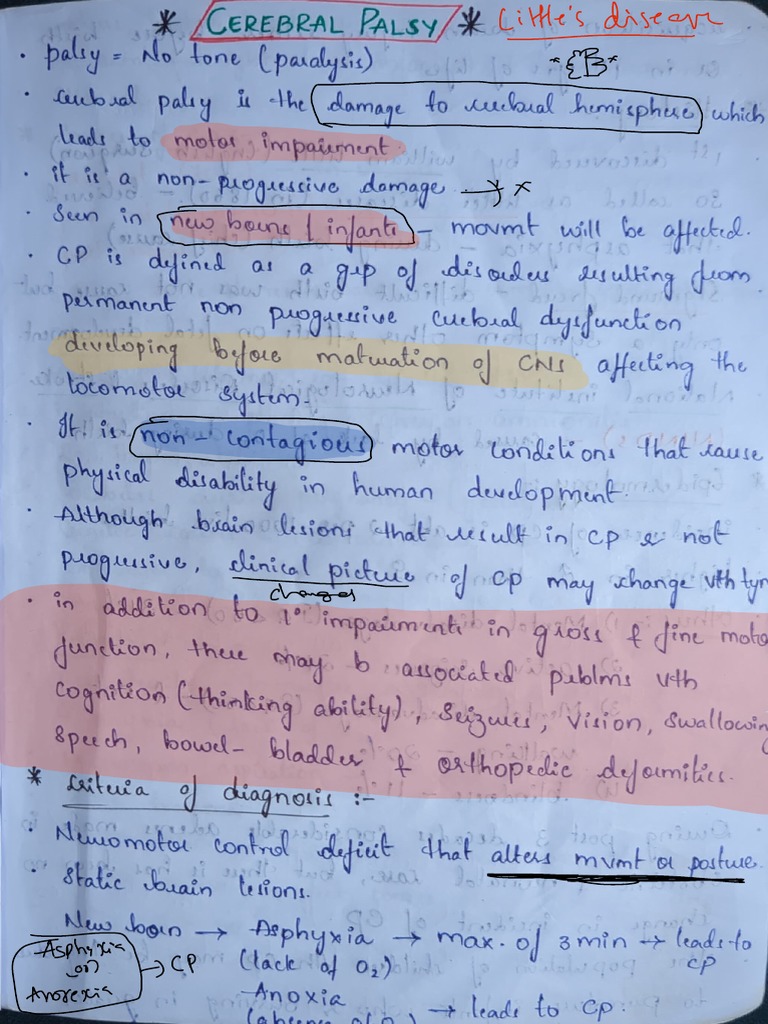 * CEREBRAL PALSY * Little's disease
• palsy = No tone (paralysis)
• cerebral palsy is the damage to cerebral hemisphere which
leads to motor impairment.
• it is a non-progressive damage
• Seen in new borns / infants - movmt will be affected.
• CP is defined as a grp of disorders resulting from
permanent non progressive cerebral dysfunction
developing before maturation of CNS affecting the
locomotor system.
• It is non-contagious motor conditions that cause
physical disability in human development.
• Although brain lesions that result in CP r not
progressive, clinical picture of CP may change vth
changes
• in addition to 1° impairments in gross & fine
function, there may b associated pblms vth
cognition (thinking ability), seizures, vision,
speech, bowel-bladder & orthopedic deformities.
* criteria of diagnosis :-
• Neuromotor control deficit that alters mvmt or posture
• Static brain lesions.
New born → Asphyxia → max. of 3 min → leads to
CP
(lack of O2)
Asphyxia
or
Anorexia
→ CP
Anoxia → leads to CP.